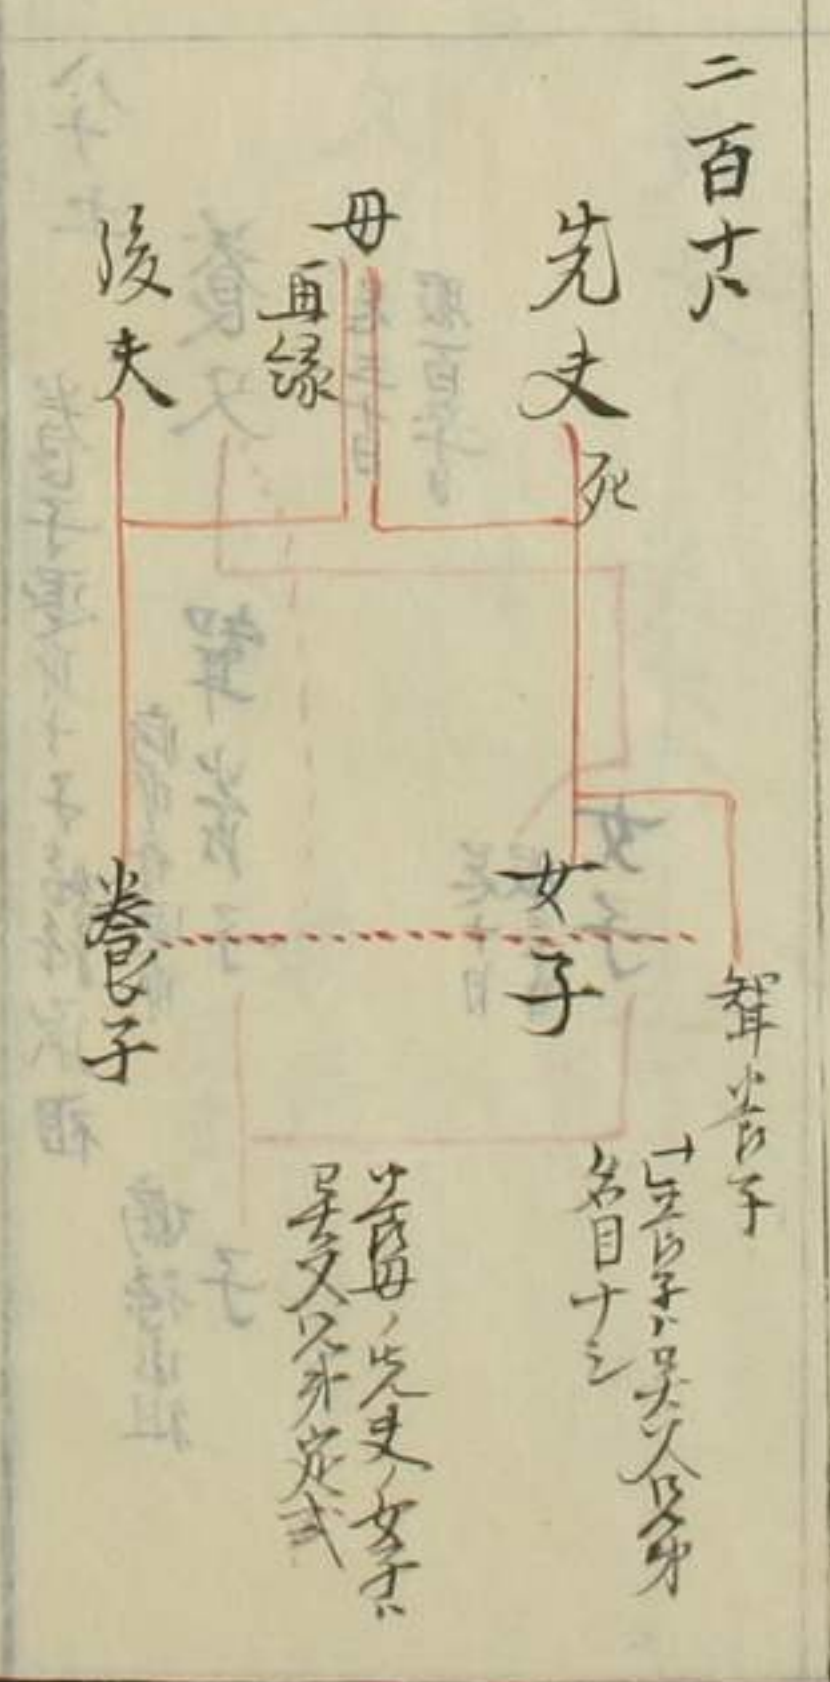 二百十八
先夫
死
母
再縁
後夫
女子
聟養子
養子
養子ハ異父兄弟
名目ナシ
養母ノ先夫ノ女子ハ
異父兄弟定式